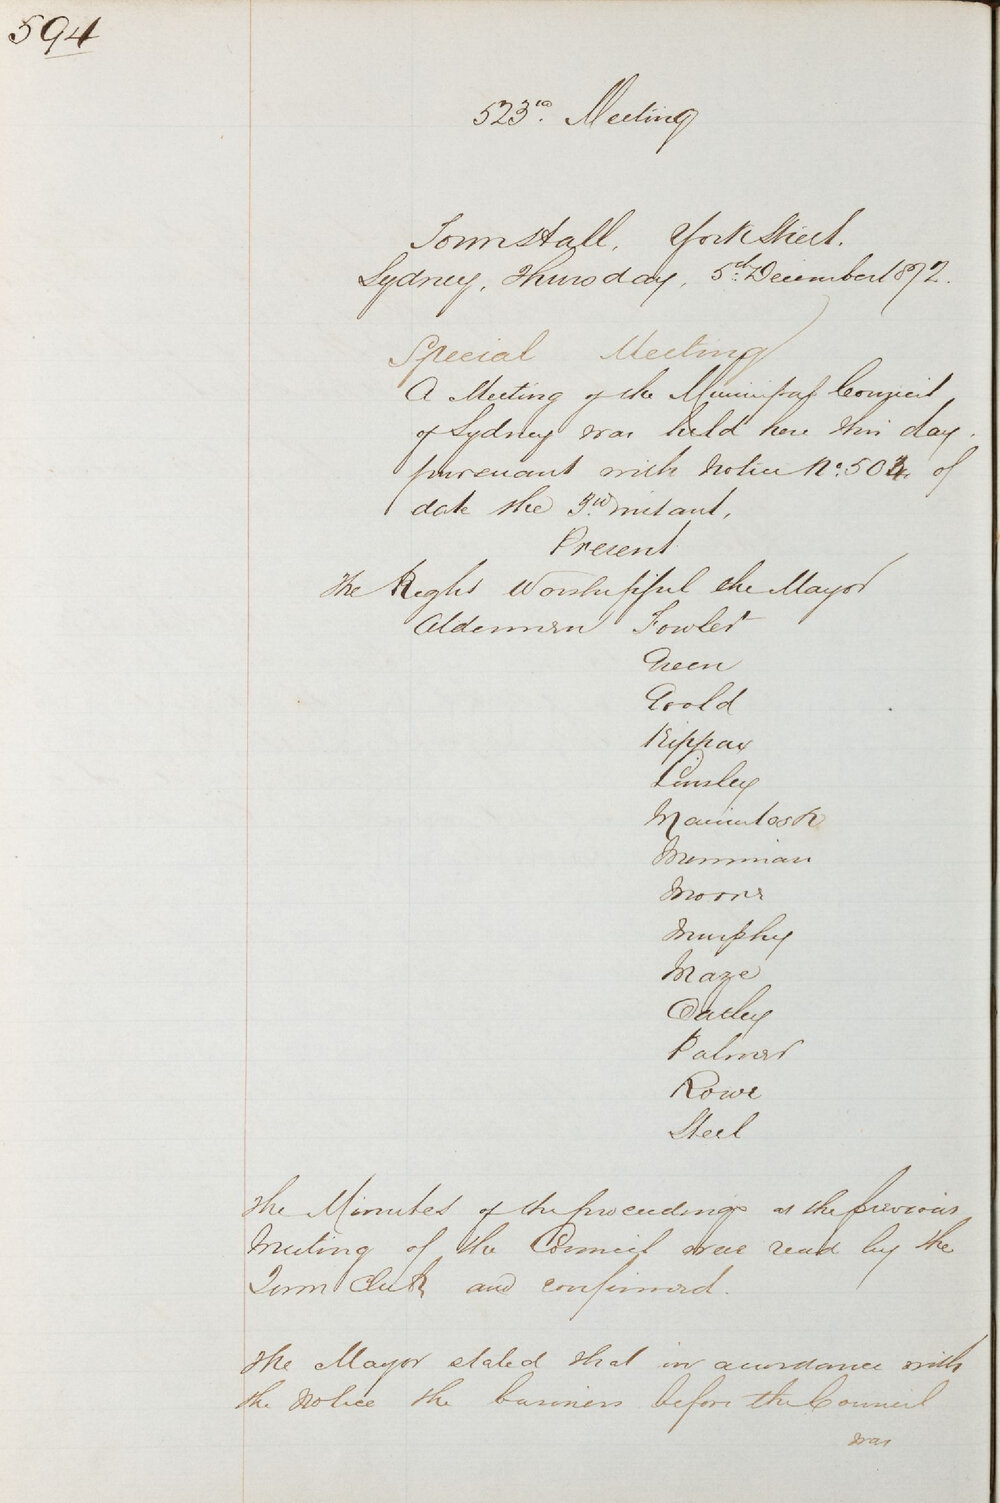 594
523rd. Meeting
Town Hall, York Street.
Sydney, Thursday, 5th. December 1872.
Special Meeting
A Meeting of the Municipal Council
of Sydney was held here this day
pursuant with Notice No. 503 of
date the 3rd instant.
Present
The Right Worshipful the Mayor
Aldermen Fowler
Green
Goold
Kippax
Linsley
Macintosh
Merriman
Moore
Murphy
Maze
Oatley
Palmer
Rowe
Steel
The Minutes of the proceedings at the previous
Meeting of the Council were read by the
Town Clerk and confirmed.
The Mayor stated that in accordance with
the Notice the business before the Council
was